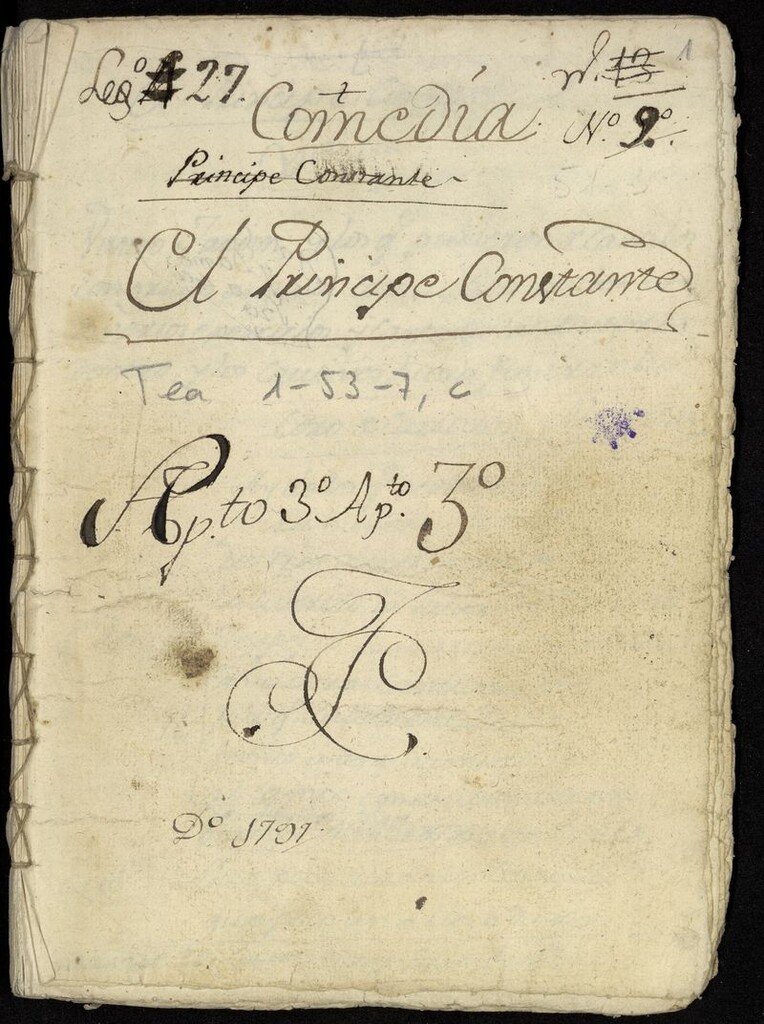 Leg.º 27.
n.º 13 1
Comedia
N.º 9.º
Principe Constante
El Principe Constante
Tea 1-53-7, c
Ap.to 3º Ap.to 3º
Dº 1797